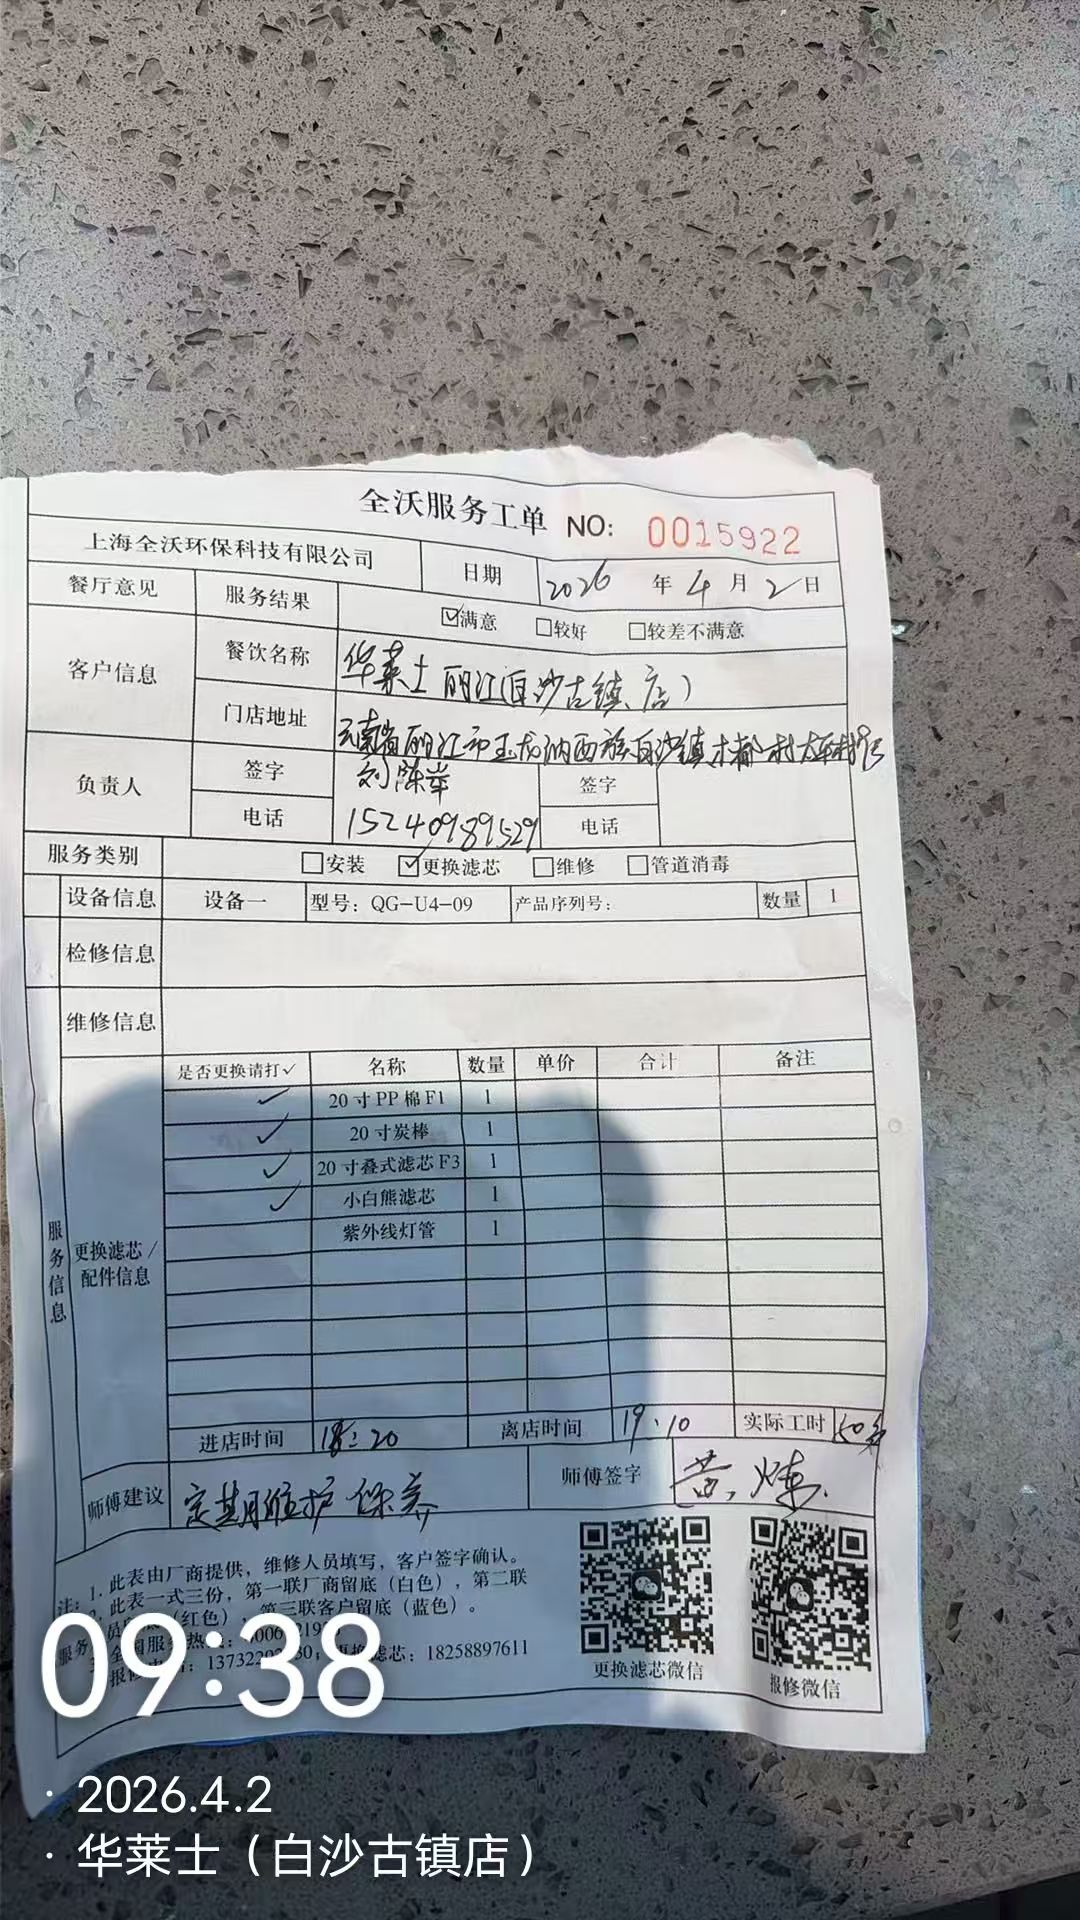 全沃服务工单 NO: 0015922
上海全沃环保科技有限公司 日期 2026 年 4 月 2 日
餐厅意见 服务结果 ☑满意 □较好 □较差不满意
客户信息 餐饮名称 华莱士丽江(白沙古镇店)
门店地址 云南省丽江市玉龙纳西族白沙镇木都村
负责人 签字 签字
电话 15240989529 电话
服务类别 □安装 ☑更换滤芯 □维修 □管道消毒
设备信息 设备一 型号: QG-U4-09 产品序列号: 数量 1
检修信息
维修信息
服务信息
更换滤芯/配件信息
是否更换请打✓ 名称 数量 单价 合计 备注
✓ 20寸PP棉F1 1
✓ 20寸炭棒 1
✓ 20寸叠式滤芯F3 1
✓ 小白熊滤芯 1
紫外线灯管 1
进店时间 18:20 离店时间 19:10 实际工时 50分
师傅建议 定期维护保养 师傅签字 黄
注: 1. 此表由厂商提供,维修人员填写,客户签字确认。
此表一式三份,第一联厂商留底(白色),第二联
(红色),第三联客户留底(蓝色)。
更换滤芯: 18258897611
更换滤芯微信 报修微信
09:38
· 2026.4.2
· 华莱士(白沙古镇店)